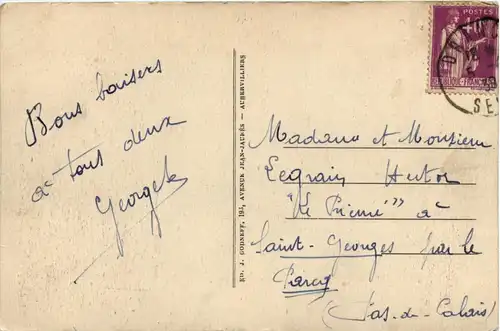 Bons baisers
à tout deux
Georgete
ED. J. GORNEFF, 191, AVENUE JEAN-JAURÈS — AUBERVILLIERS
POSTES
Madame et Monsieur
Legrain Hutor
"Le Prieuré" à
Saint-Georges par le
Parcq
(Pas-de-Calais)